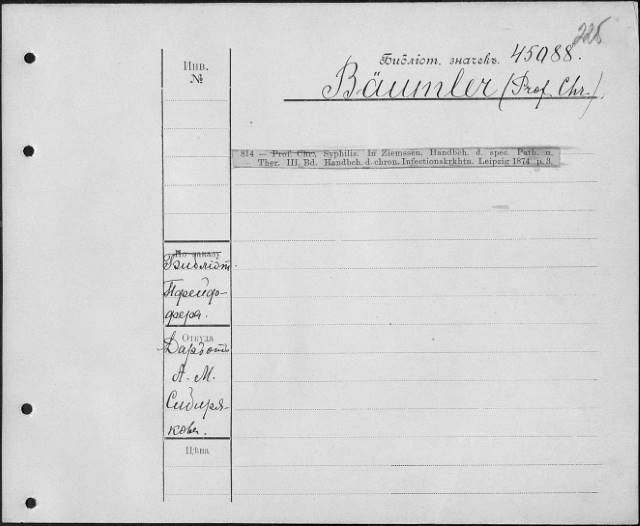 225
Инв.
№
Библіот. значекъ. 45088.
Bäumler (Prof. Chr.).
814 — Prof. Chr., Syphilis. In Ziemssen, Handbch. d. spec. Path. u.
Ther. III. Bd. Handbch. d. chron. Infectionskrkhtn. Leipzig 1874 p. 3.
По заказу
Библіот.
Пфейф-
фера.
Откуда
Даръ отъ
А. М.
Сибиря-
кова.
Цѣна